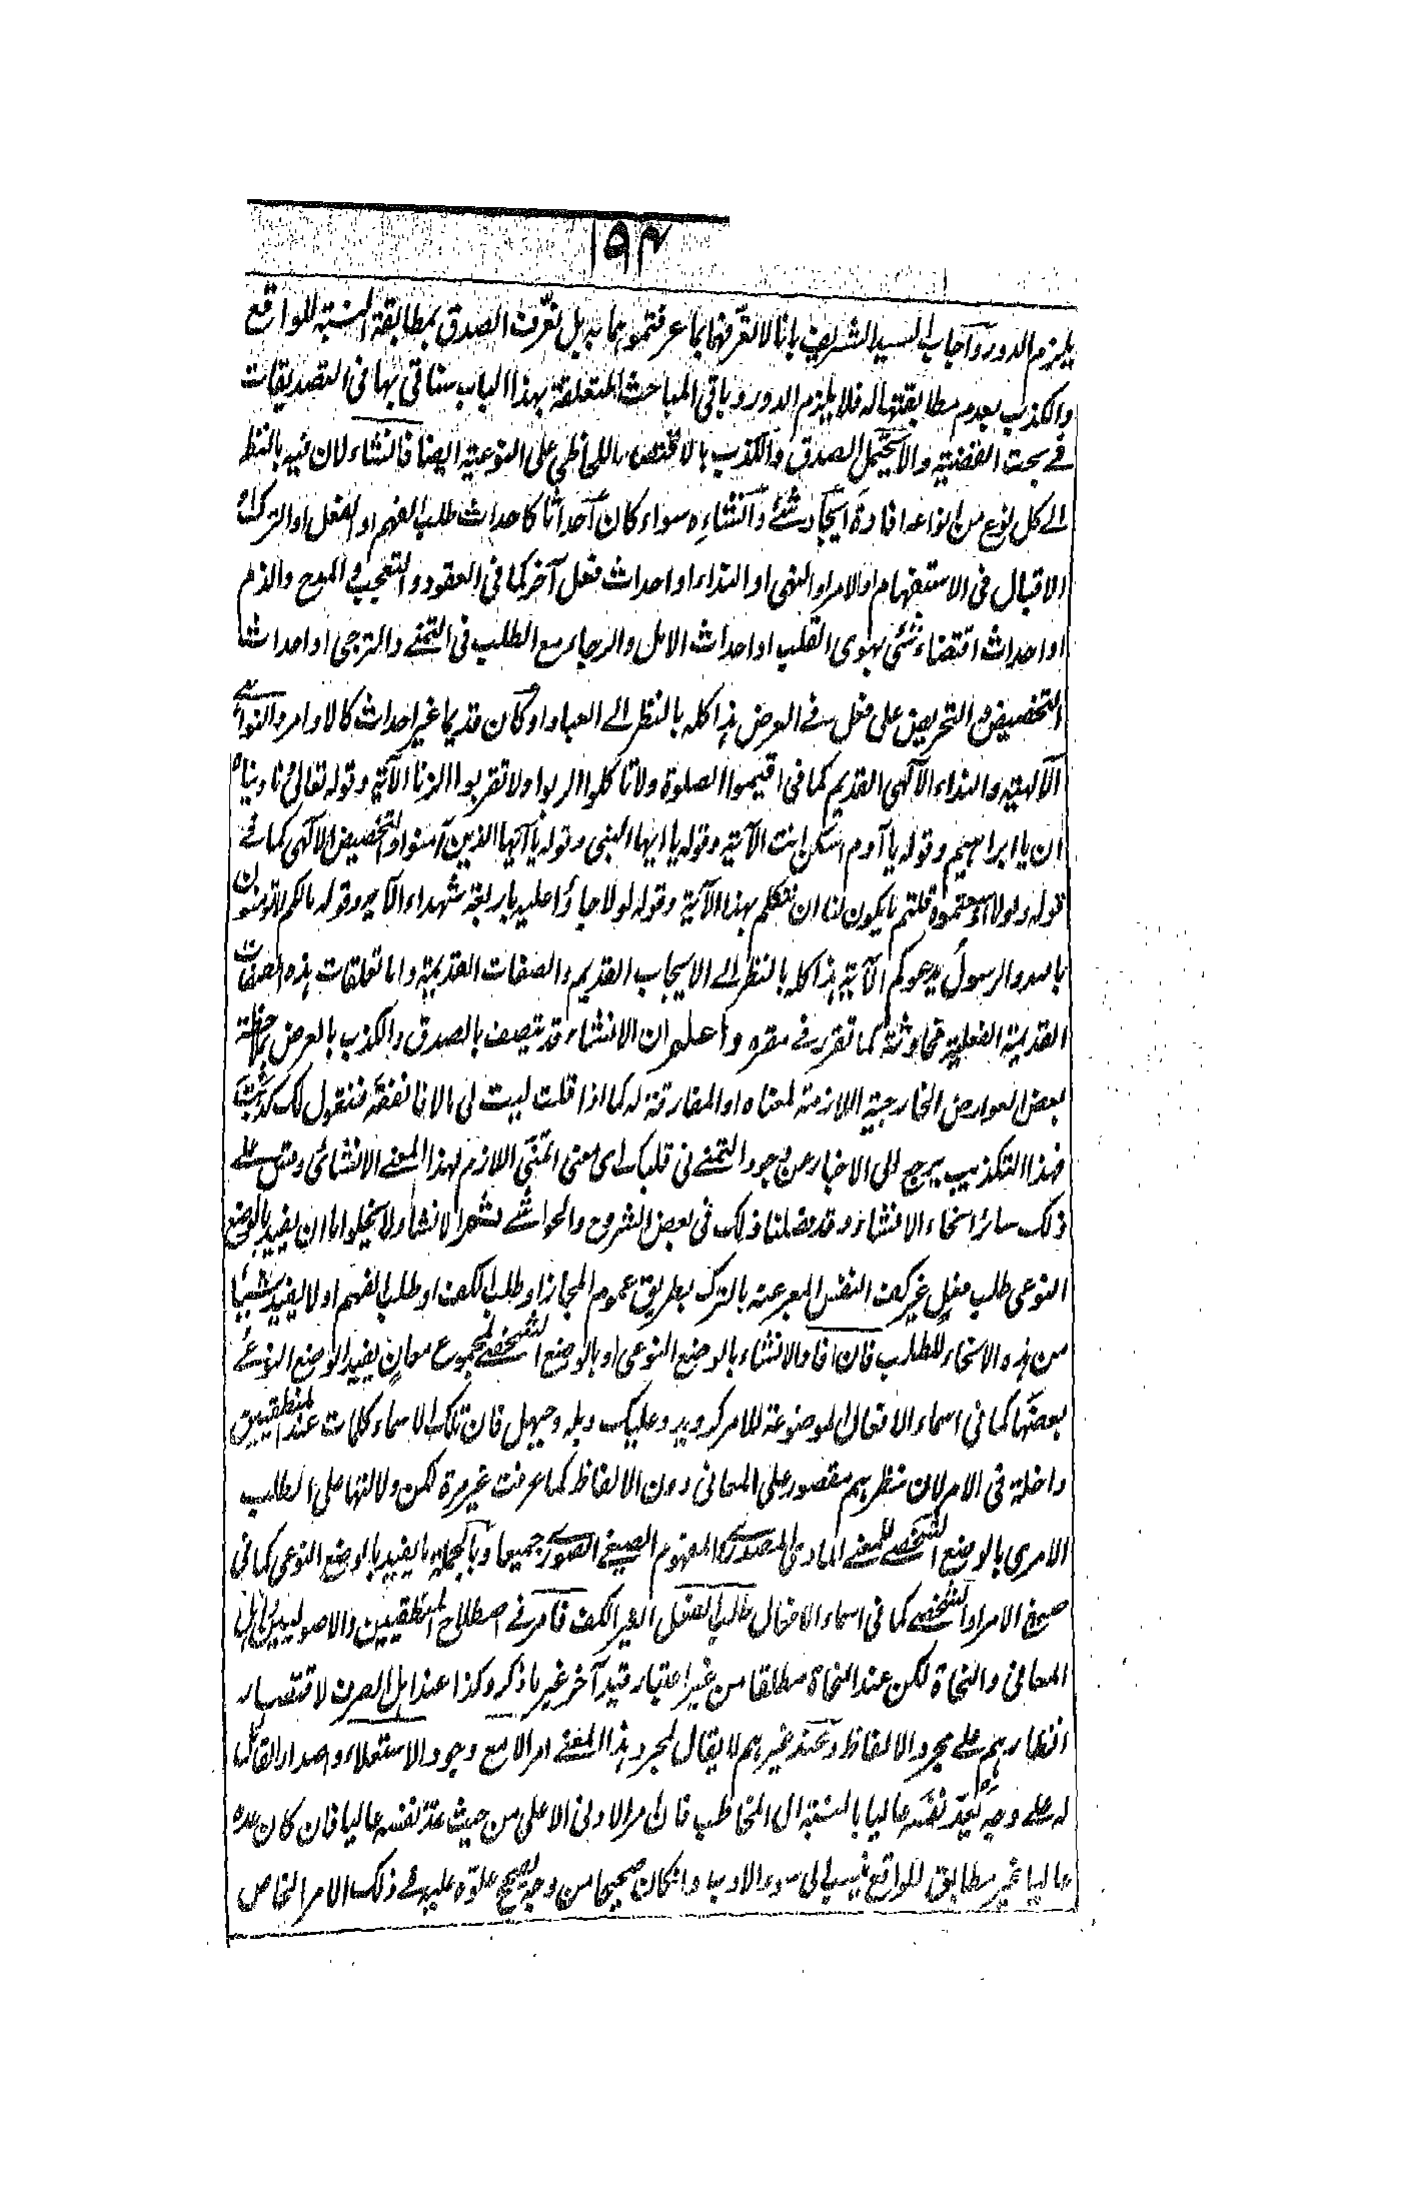 ١٩٤
يلزم الدور وأجاب السيد الشريف بانا لا نعرفهما بما عرفتموهما به بل نعرف الصدق بمطابقة النسبة للواقع
والكذب بعدم مطابقتها له فلا يلزم الدور وباقي المباحث المتعلقة بهذا الباب ستاتي بها في التصديقات
في بحث القضية والا يحتمل الصدق والكذب بالاقتصار اللحاظي على النوعية ايضا فانشاء لان فيه بالنظر
الى كل نوع من انواعه افادة ايجاد شئ وانشاءه سواء كان احداثا كاحداث طلب الفهم او الفعل او الترك او
الاقبال في الاستفهام والامر والنهى او النداء او احداث فعل آخر كما في العقود والتعجب والمدح والذم
او احداث اقتضاء شئ بهوى القلب او احداث الامل والرجاء مع الطلب في التمنے والترجى او احداث
التحضيض والتحريص على فعل في العرض هذا كله بالنظر الے العباد او كان قديما غير احداث كالاوامر والنواهي
الآلهية والنداء الآلهى القديم كما في اقيموا الصلوة ولا تاكلوا الربوا ولا تقربوا الزنا الآية وقوله تعالى وناديناه
ان يا ابراهيم وقوله يا آدم اسكن انت الآية وقوله يا ايها النبى وقوله يا ايها الذين آمنوا والتحضيض الآلهى كما في
قوله ولولا اذ سمعتموه قلتم ما يكون لنا ان نتكلم بهذا الآية وقوله لولا جاؤا عليه باربعة شهداء الآية وقوله مالكم لا تؤمنون
بالله والرسول يدعوكم الآية هذا كله بالنظر الے الايجاب القديم والصفات القديمة واما تعلقات هذه الصفات
القديمة الفعلية فحادثة كما تقرر في مقره واعلم ان الانشاء قد يتصف بالصدق والكذب بالعرض بملاحظة
بعض العوارض الخارجية اللازمة لمعناه او المقارنة له كما اذا قلت ليت لى مالا فانفقه فنقول لك كذبت
فهذا التكذيب يرجع الى الاخبار عن وجود التمنے في قلبك اى معنى التمنى اللازم لهذا المعنے الانشائى وقس علے
ذلك سائر انحاء الانشاء وقد فصلنا ذلك في بعض الشروح والحواشے ثم الانشاء لا يخلو اما ان يفيد بالوضع
النوعى طلب فعل غير كف النفس المعبر عنه بالترك بطريق عموم المجاز او طلب الكف او طلب الفهم او لا يفيد شيئا
من هذه الانحاء للطلب فان افاد الانشاء بالوضع النوعى او بالوضع الشخصے لمجموع معان يفيد الوضع النوعے
بعضها كما في اسماء الافعال الموضوعة للامر كرويد وعليك وبله وحيهل فان تلك الاسماء كلمات عند المنطقيين
داخلة في الامر لان نظرهم مقصور على المعانى دون الالفاظ كما عرفت غير مرة لكن دلالتها على الطلب
الامرى بالوضع الشخصے للمعنے المادى المصدرے والمفهوم الصيغى الصورے جميعا وبالجملة ما يفيد بالوضع النوعى كما في
صيغ الامر او الشخصے كما في اسماء الافعال طلب الفعل الغير الكف فامر في اصطلاح المنطقيين والاصوليين واهل
المعانى والنحاة لكن عند النحاة مطلقا من غير اعتبار قيد آخر غير ما ذكر وكذا عند اهل الصرف لاقتصار
انظارهم علے مجرد الالفاظ وعند غيرهم لا يقال لمجرد هذا المعنے امر الا مع وجود الاستعلاء واصدار القائل
له علے وجه يعد نفسه عاليا بالنسبة الى المخاطب فالامر الادنى الاعلى من حيث عد نفسه عاليا فان كان عده
عاليا غير مطابق للواقع ينسب الى سوء الادب وان كان صحيحا من وجه يصح علوه عليه في ذلك الامر الخاص